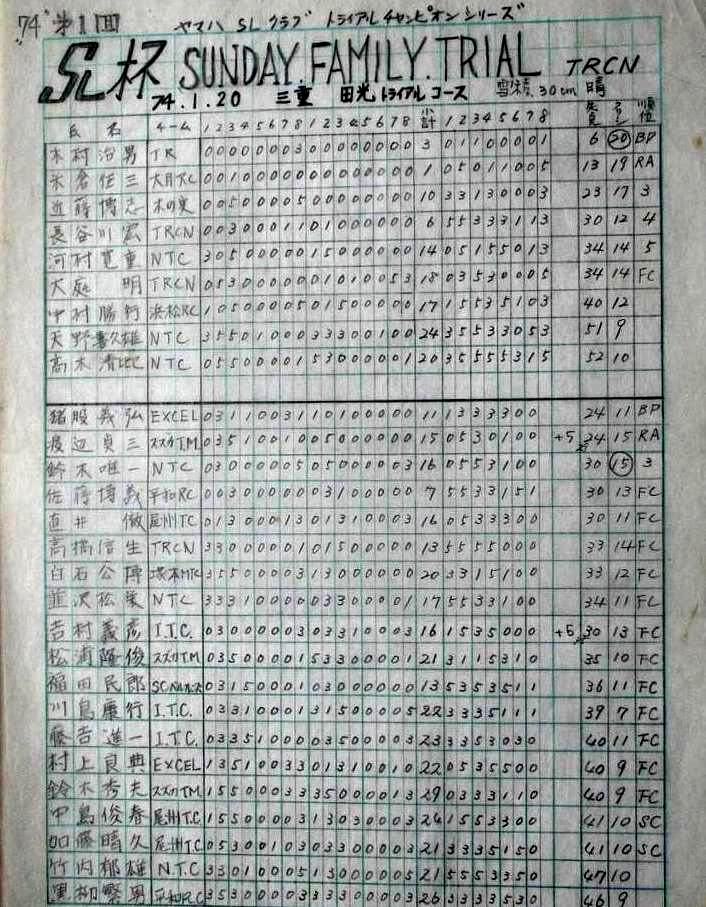 74' 第1回 ヤマハ SLクラブ トライアルチャンピオンシリーズ
SL杯 SUNDAY.FAMILY.TRIAL TRCN
74.1.20 三重 田光トライアルコース 雪積30cm 晴
氏名 チーム 1 2 3 4 5 6 7 8 1 2 3 4 5 6 7 8 小計 1 2 3 4 5 6 7 8 減点 クリーン 順位
木村治男 TR 0 0 0 0 0 0 0 3 0 0 0 0 0 0 0 0 3 0 1 1 0 0 0 0 1 6 20 BP
米倉任三 大月TC 0 0 1 0 0 0 0 0 0 0 0 0 0 0 0 0 1 1 0 5 0 1 1 0 0 5 13 19 RA
近藤博志 木の実 0 0 5 0 0 0 5 0 0 0 0 0 0 0 0 0 10 3 3 1 3 0 0 0 3 23 17 3
長谷川宏 TRCN 0 0 3 0 0 0 1 1 0 1 0 0 0 0 0 0 6 5 5 3 3 3 1 1 3 30 12 4
河村寛重 NTC 14 0 5 1 5 5 0 1 3 34 14 5
大庭明 TRCN 0 5 3 0 0 0 0 0 1 0 1 0 0 5 3 18 0 3 5 3 0 0 0 5 34 14 FC
中村勝行 浜松RC 1 0 5 0 0 0 0 5 0 1 5 0 0 0 0 0 17 1 5 5 3 5 1 0 3 40 12
天野喜久雄 NTC 3 5 5 0 1 0 0 0 3 3 3 0 0 1 0 0 24 3 5 5 3 3 0 5 3 51 9
高木 NTC 0 5 5 0 0 0 0 1 5 3 0 0 0 0 0 1 20 3 5 5 5 5 3 1 5 52 10
猪股義弘 EXCEL 0 3 1 1 0 0 3 1 1 0 1 0 0 0 0 0 11 1 3 3 3 3 0 0 24 11 BP
渡辺貞三 スズカTM 0 3 5 1 0 0 1 0 0 5 0 0 0 0 0 0 15 0 5 3 0 1 0 0 +5 24 15 RA
鈴木唯一 NTC 0 3 0 0 0 0 0 5 0 5 0 0 0 0 0 3 16 0 5 5 3 1 0 0 30 15 3
佐藤博義 平和RC 0 0 3 0 0 0 0 0 0 3 1 0 0 0 0 0 7 5 5 3 3 1 5 1 30 13 FC
直井徹 尾州TC 0 1 3 0 0 0 1 3 0 1 3 1 0 0 0 3 16 0 5 3 3 3 0 0 30 11 FC
高橋信生 TRCN 3 3 0 0 0 0 0 1 0 1 5 0 0 0 0 0 13 5 5 5 5 0 0 0 33 14 FC
白石公博 塚本MTC 3 5 5 0 0 0 0 3 1 3 0 0 0 0 0 0 20 3 3 1 5 1 0 0 33 12 FC
韮沢松美 NTC 3 3 3 1 0 0 0 0 0 3 3 0 0 0 0 1 17 5 5 3 3 1 0 0 34 11 FC
吉村義彦 I.T.C. 0 3 0 0 0 0 0 3 0 3 3 1 0 0 0 3 16 1 5 3 5 0 0 0 +5 30 13 FC
松浦隆俊 スズカTM 0 3 5 0 0 0 0 1 5 3 3 0 0 0 0 1 21 3 1 1 5 3 1 0 35 10 FC
福田民郎 0 3 1 5 0 0 0 1 0 3 0 0 0 0 0 0 13 5 3 5 3 5 1 1 36 11 FC
川島康行 I.T.C. 0 3 3 1 0 0 0 1 3 1 5 0 0 0 0 5 22 3 3 3 5 1 1 1 39 7 FC
藤吉進一 I.T.C. 0 3 3 5 1 0 0 0 0 3 5 0 0 0 0 3 23 3 3 5 3 0 3 0 40 11 FC
村上良典 EXCEL 1 3 5 1 0 0 3 3 0 1 3 1 0 0 1 0 22 0 5 3 5 5 0 0 40 9 FC
鈴木秀夫 スズカTM 1 5 5 0 0 0 3 3 3 5 0 0 0 0 1 3 29 0 3 3 3 1 1 0 40 9 FC
中島俊春 尾州T.C 1 5 5 0 0 0 0 3 1 3 0 3 0 0 0 3 24 1 5 5 3 3 0 0 41 10 SC
加藤晴久 尾州TC 0 5 3 0 0 1 0 3 0 3 3 0 0 0 0 3 21 3 3 3 5 1 5 0 41 10 SC
竹内郁雄 N.T.C 3 3 0 1 0 0 0 5 1 3 0 0 0 0 0 5 21 5 5 5 3 5 3 0 47 10
黒柳繁男 平和R.C 3 5 3 0 0 0 0 3 3 3 3 0 0 0 0 3 26 3 3 3 3 5 3 0 46 9